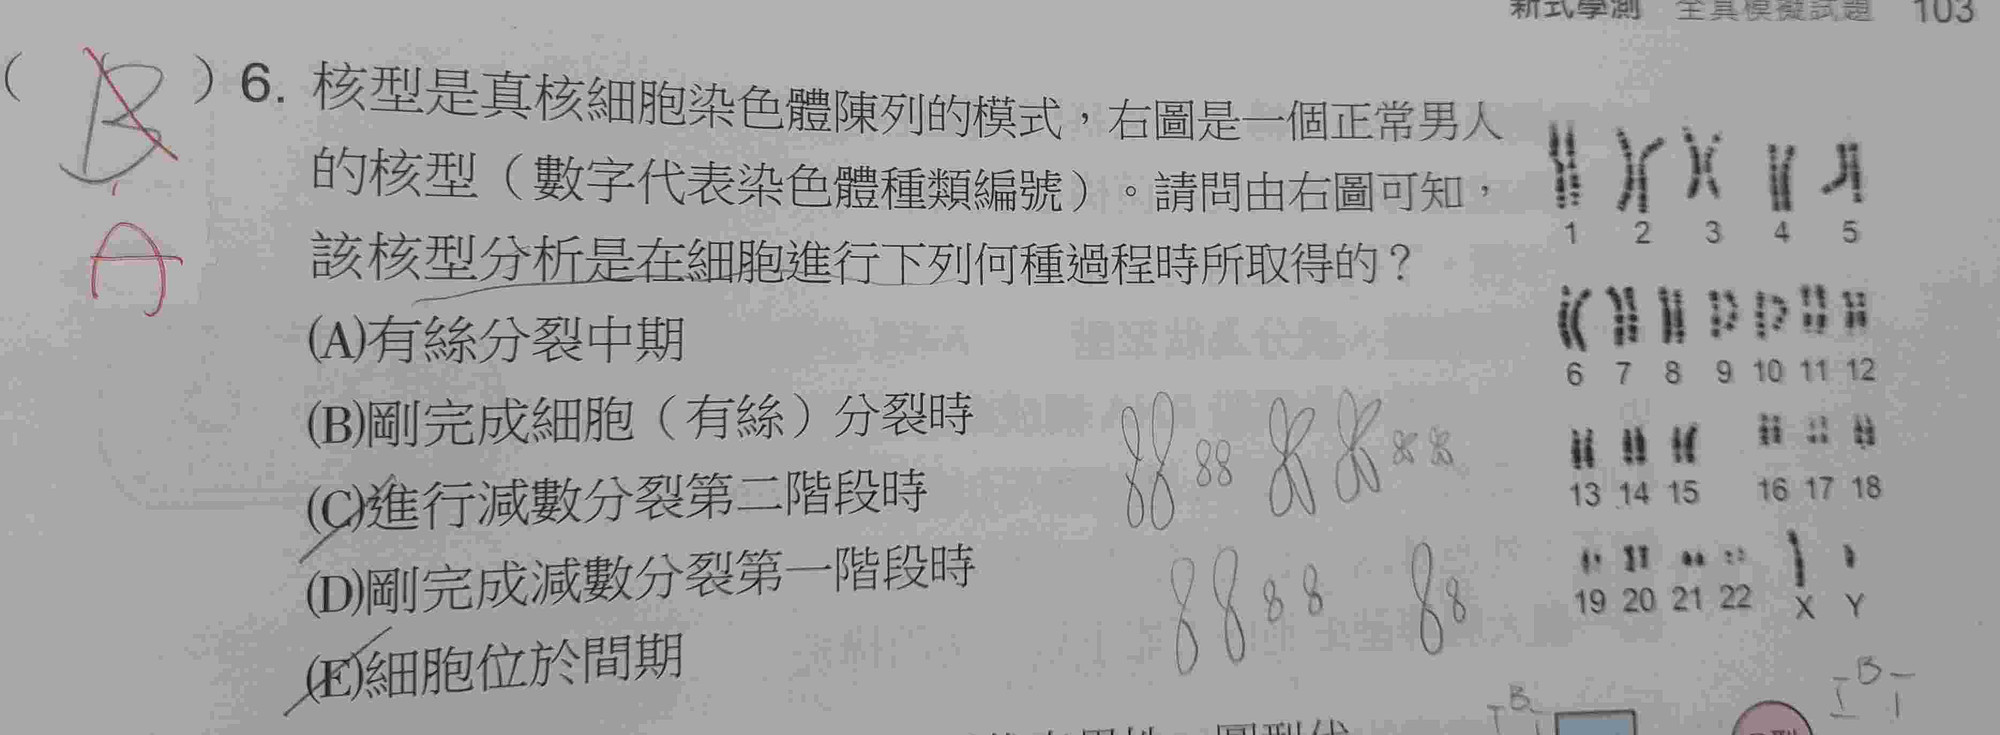 新式學測 全真模擬試題 103
( B ) 6. 核型是真核細胞染色體陳列的模式，右圖是一個正常男人
的核型（數字代表染色體種類編號）。請問由右圖可知，
該核型分析是在細胞進行下列何種過程時所取得的？
A
(A)有絲分裂中期
(B)剛完成細胞（有絲）分裂時
(C)進行減數分裂第二階段時
(D)剛完成減數分裂第一階段時
(E)細胞位於間期
1 2 3 4 5
6 7 8 9 10 11 12
13 14 15 16 17 18
19 20 21 22 X Y